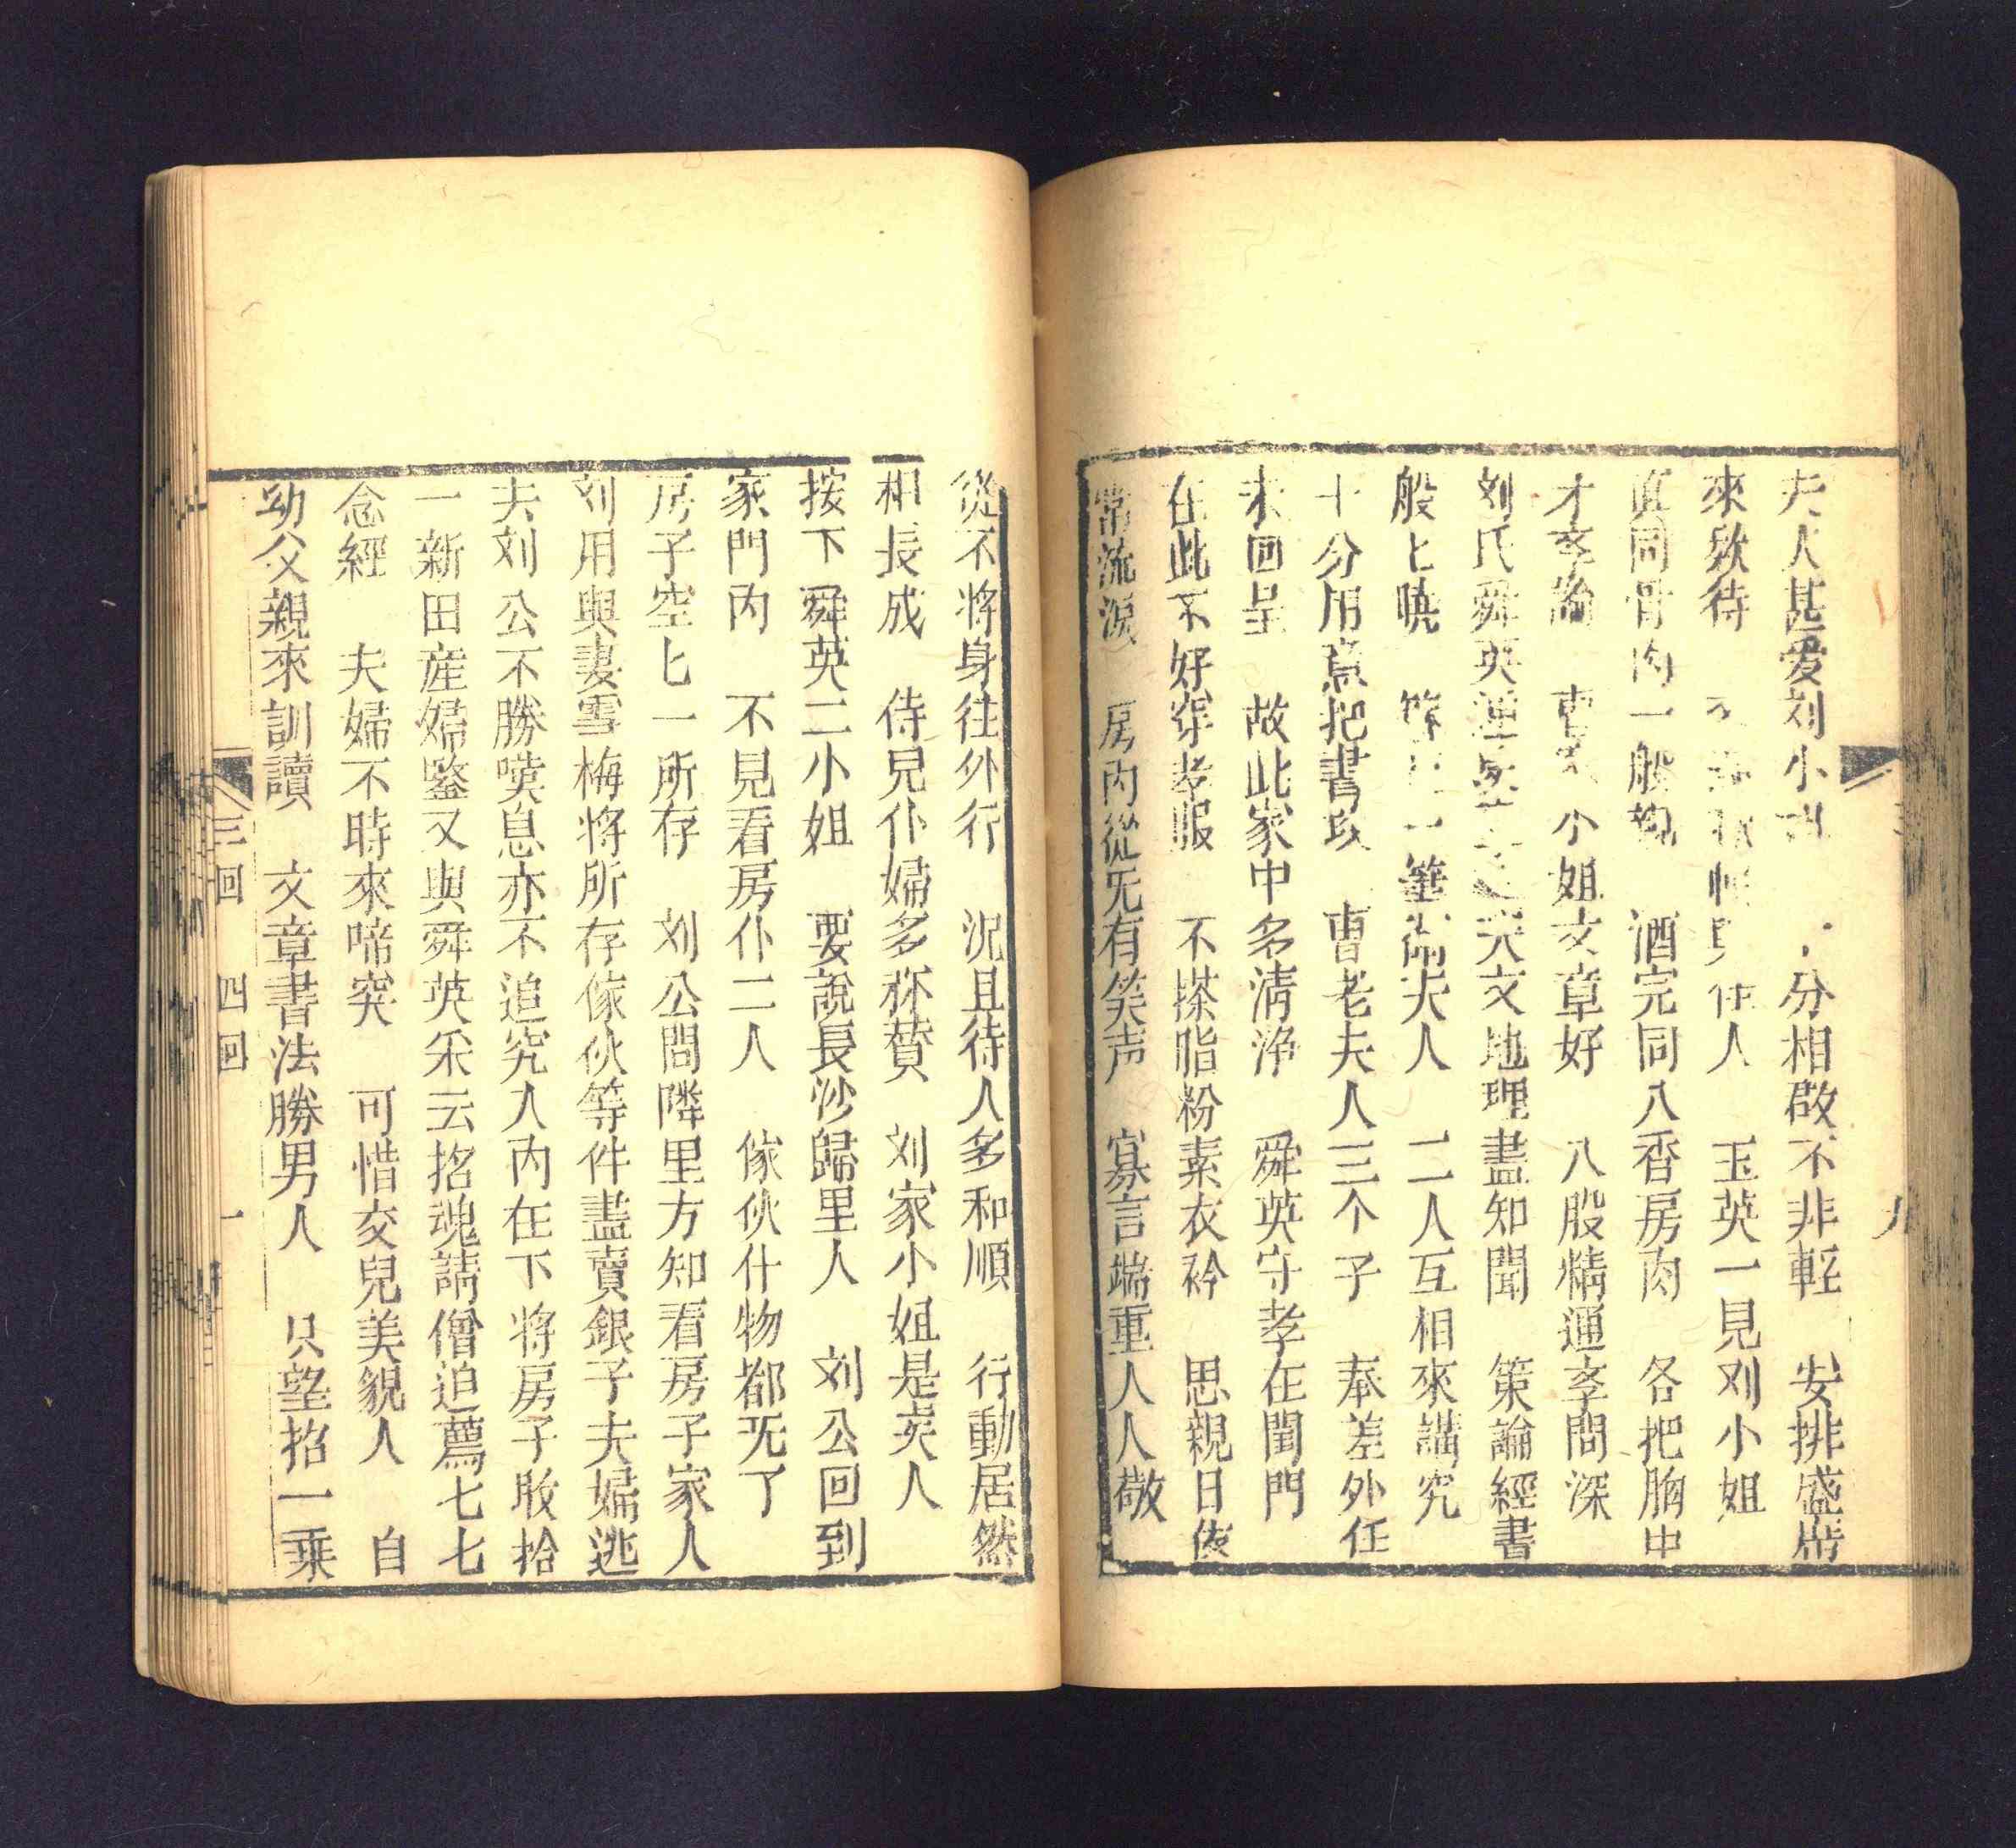 夫人甚爱刘小 分相敬不非輕 安排盛席
來欸待 人 玉英一見刘小姐
直同骨肉一般 酒完同入香房内 各把胸中
才孝論 曹 小姐文章好 八股精通孝問深
刘氏舜英 天文地理盡知聞 策論經書
般匕曉 一筆 夫人 二人互相來講究
十分用意把書攻 曹老夫人三个子 奉差外任
未回呈 故此家中多清淨 舜英守孝在閨門
在此不好穿孝服 不搽脂粉素衣衿 思親日夜
常流淚 房内從旡有笑声 寡言端重人人敬
九
從不將身往外行 況且待人多和順 行動居然
相長成 侍兒仆婦多称賛 刘家小姐是美人
按下舜英二小姐 要說長沙歸里人 刘公回到
家門内 不見看房仆二人 傢伙什物都旡了
房子空匕一所存 刘公問隣里方知看房子家人
刘用與妻雪梅將所存傢伙等件盡賣銀子夫婦逃
去刘公不勝嘆息亦不追究入内在下將房子收拾
一新田産婦鑒又與舜英采云招魂請僧追薦七七
念經 夫婦不時來啼哭 可惜女兒美貌人 自
幼父親來訓讀 文章書法勝男人 只望招一乘
三回 四回 一